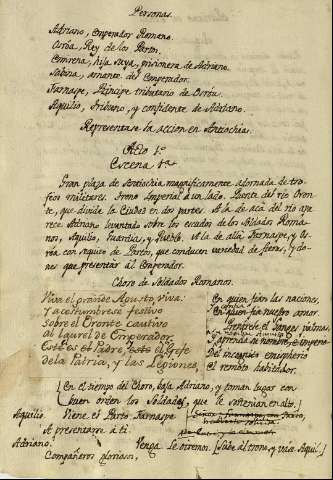 Personas.
Adriano, Emperador Romano.
Osróa, Rey de los Partos.
Emirena, hija suya, prisionera de Adriano.
Sabina, amante del Emperador.
Farnaspe, Príncipe tributario de Osróa.
Aquilio, Tribuno, y confidente de Adriano.
Representase la accion en Antiochia.
Acto 1º
Escena 1ª
Gran plaza de Antiochia magnificamente adornada de tro-
feos militares. Trono Imperial á un lado. Puente del rio Oron-
te, que divide la Ciudad en dos partes. A la de acá del rio apa-
rece Adriano levantado sobre los escudos de los Soldados Roma-
nos, Aquilio, Guardias, y Pueblo. A la de allá Farnaspe, y Os-
róa con sequito de Partos, que conducen variedad de fieras, y do-
nes que presentar al Emperador.
Choro de Soldados Romanos.
Viva el grande Augusto, viva:
Y acostumbrese festivo
Sobre el Oronte cautivo
Al laurel de Emperador.
Padre, el Gefe
de la Patria, y las Legiones,
En quien fian las naciones,
En quien fia nuestro amor.
el Ganges palmas,
aprenda su nombre, é imperio
Del incognito emispherio
El remoto habitador.
En el tiempo del Choro, baja Adriano, y toman lugar con
buen orden los Soldados, que le sostenian en alto.
Aquilio. Viene el Parto Farnaspe
A presentarse á ti.
Adriano. Venga le oiremos. Sube al trono, y váse Aquil.
Compañeros gloriosos,